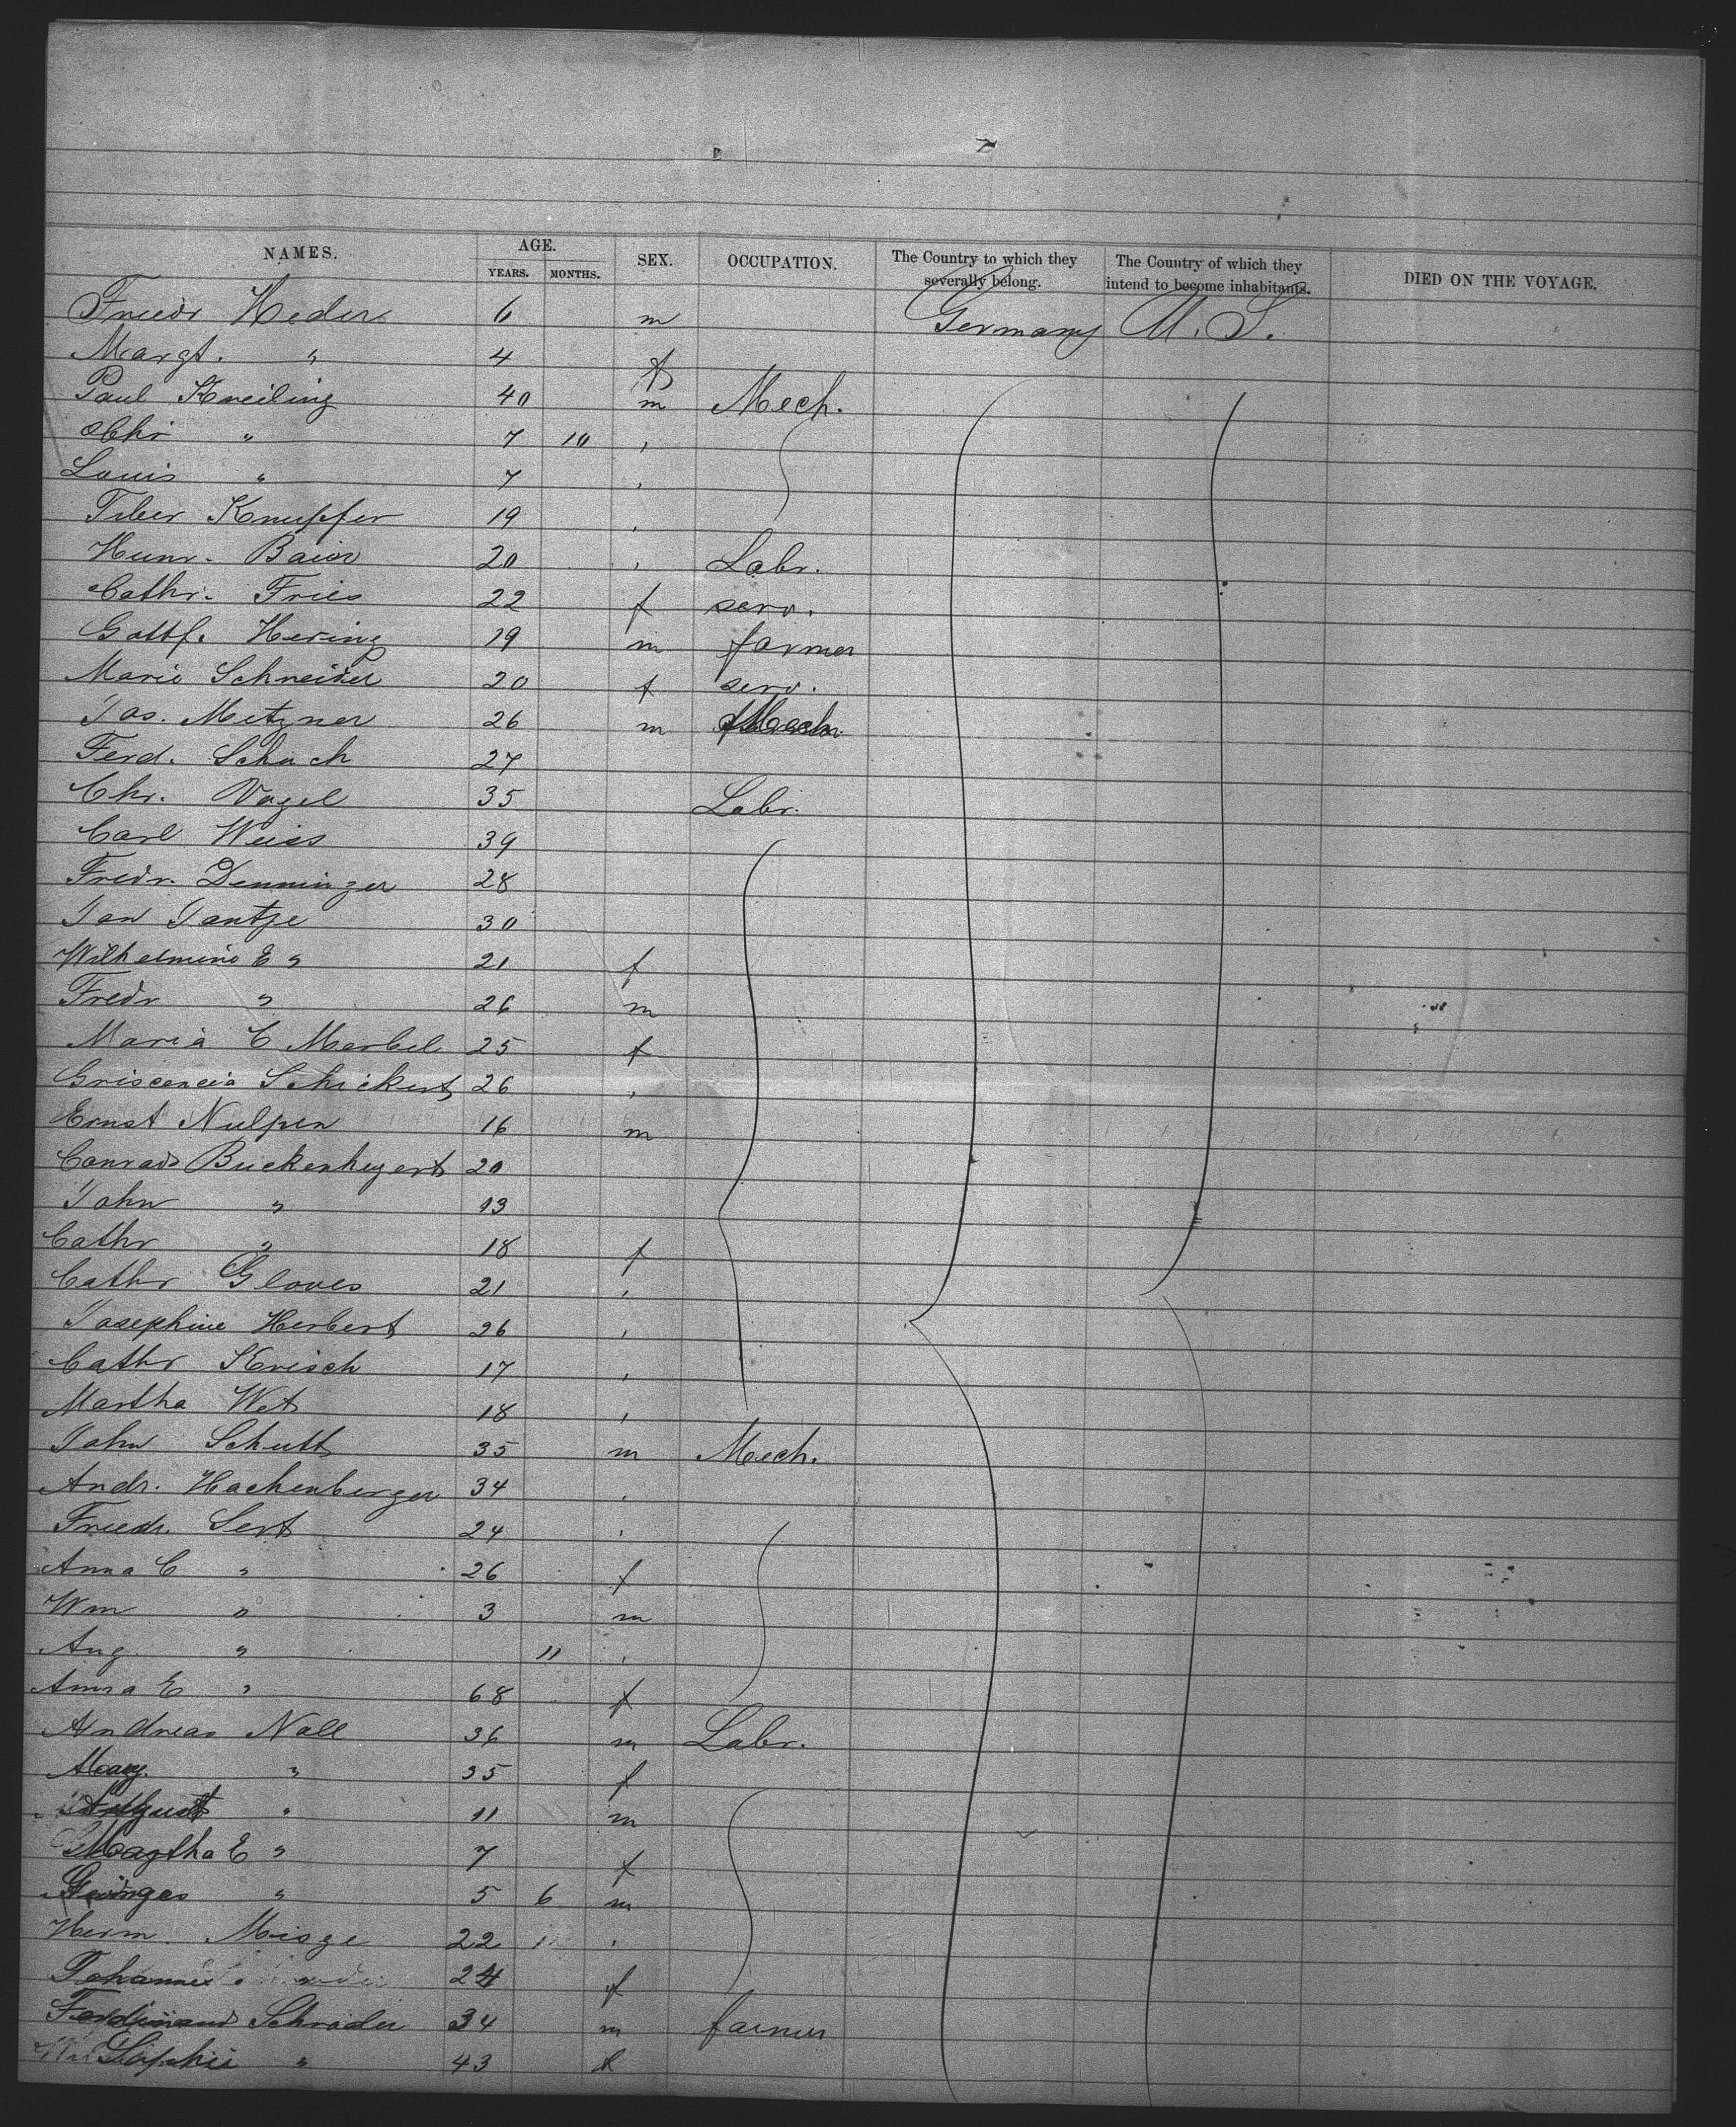 7
NAMES. AGE. YEARS. MONTHS. SEX. OCCUPATION. The Country to which they severally belong. The Country of which they intend to become inhabitants. DIED ON THE VOYAGE.
Friedr Heder 6 m Germany U. S.
Margt. " 4 f
Paul Kneiling 40 m Mech.
Chr " 7 10 "
Louis " 7 "
Knupfer 19 "
Heinr. Baier 20 " Labr.
Cathr. Fries 22 f serv.
Gottf. Hering 19 m farmer
Marie Schneider 20 f serv.
Jos. Metzner 26 m Mech.
Ferd. Schuch 27
Chr. Vogel 35 Labr.
Carl Weiss 39
Fredr. Denninger 28
Jan Jantze 30
Wilhelmine E " 21 f
Fredr " 26 m
Maria C Merbel 25 f
Schickert 26 "
Ernst Nulpen 16 m
Conrad 20
John " 13
Cathr " 18 f
Cathr Gloves 21 "
Josephine Herbert 26 "
Cathr Krisch 17 "
Martha Wet 18 "
John Schutt 35 m Mech.
Andr. Hachenberger 34 "
Friedr. Sert 24 "
Anna C " 26 f
Wm " 3 m
Aug. " 11 "
Anna E " 68 f
Andreas Noll 36 m Labr.
Marg. " 35 f
August " 11 m
Magtha E " 7 f
Georges " 5 6 m
Herm. Misge 22 "
24 f
Ferdinand Schroder 34 m farmer
Sophie " 43 f